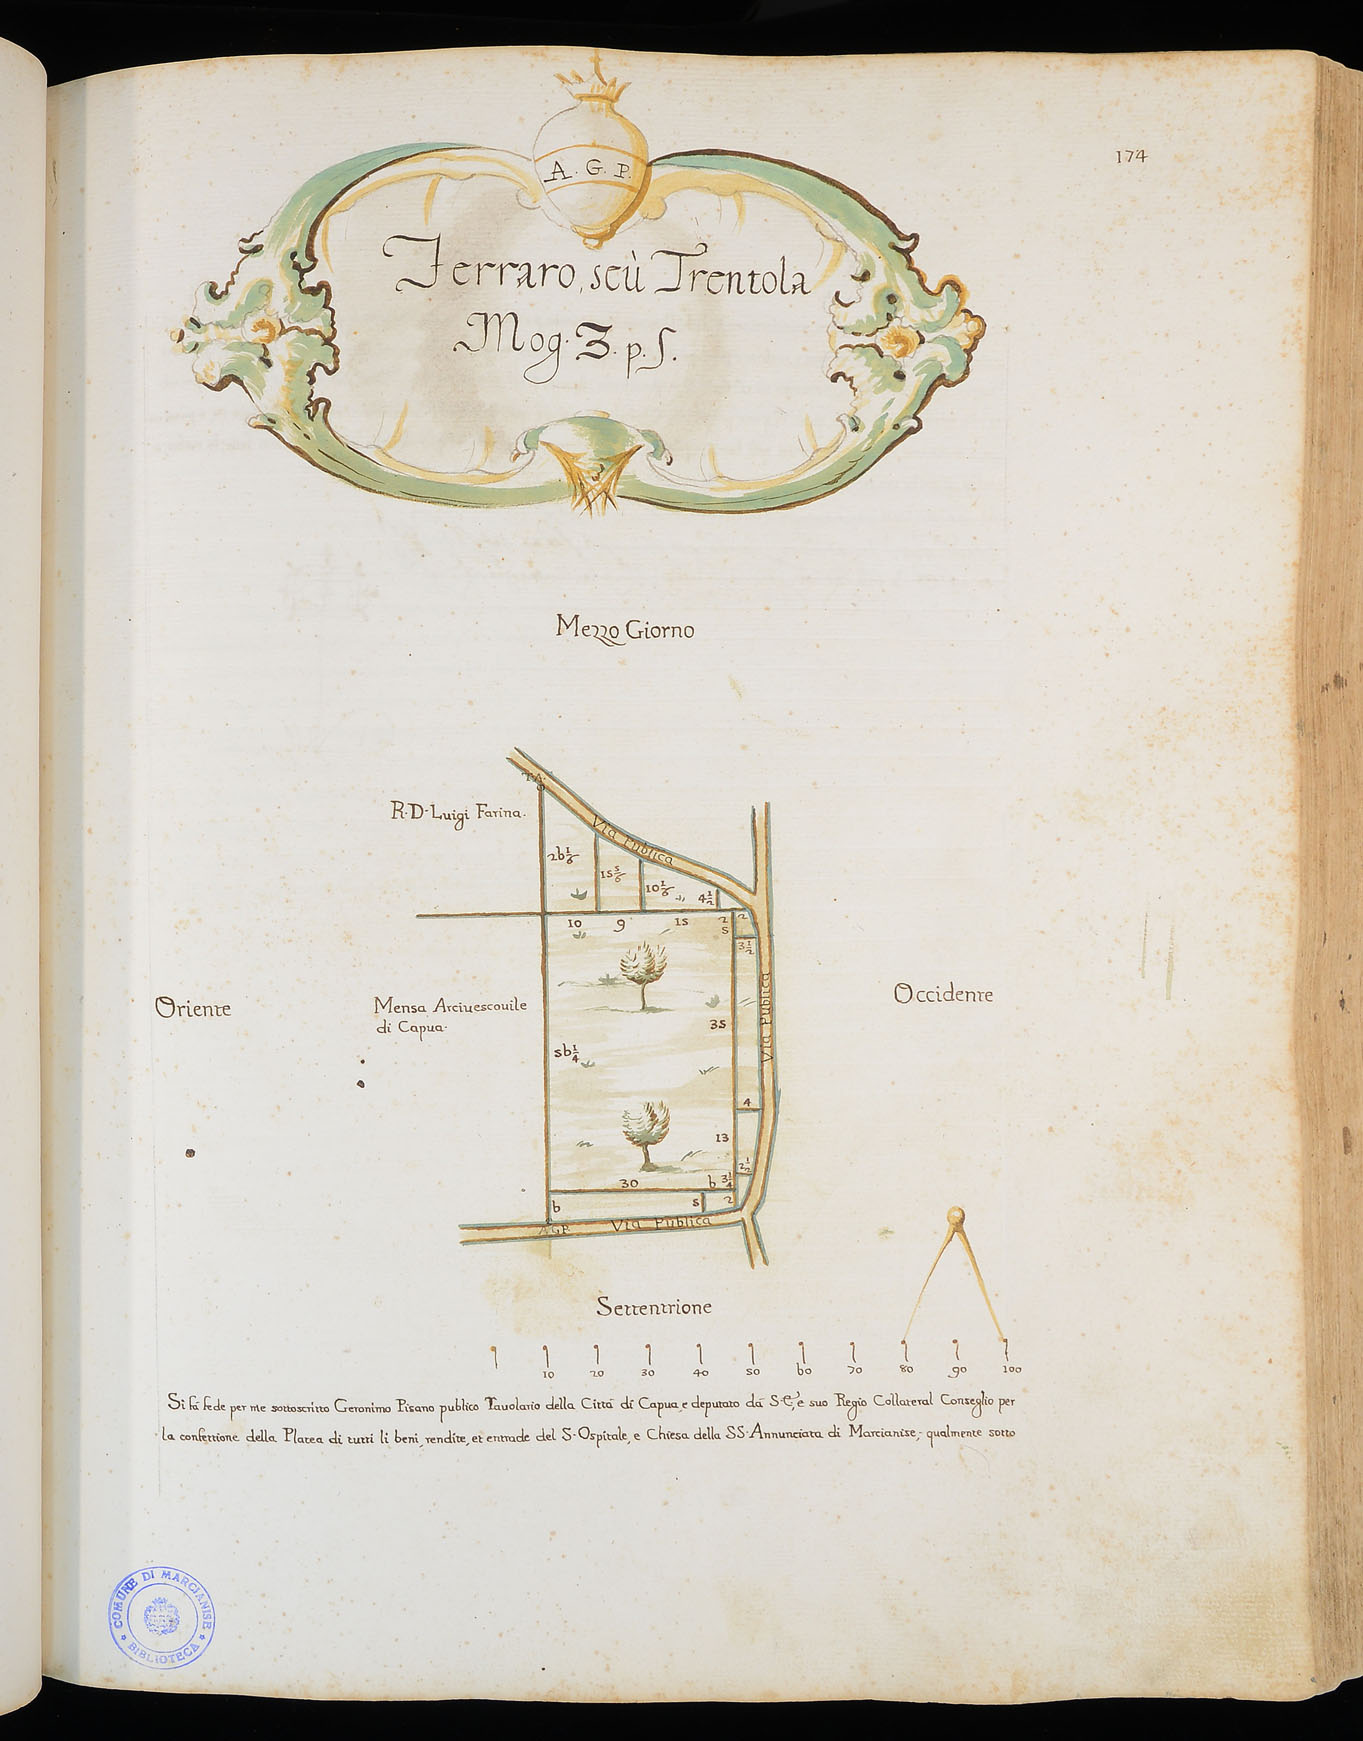 174
A. G. P.
Ferraro, seù Trentola
Mog. 3. p. s.
Mezzo Giorno
R. D. Luigi Farina.
Via Publica
26 1/6
15 5/6
10 1/6
4 1/2
10 9 15 2 2
5
3 1/2
Oriente
Mensa Arciuescouile
di Capua.
Occidente
Via Publica
35
56 1/4
4
13
2 1/2
30 6 3 1/4
6 5 2
A.G.P. Via Publica
Settentrione
10 20 30 40 50 60 70 80 90 100
Si fà fede per me sottoscritto Geronimo Pisano publico Tauolario della Città di Capua, e deputato dà S. E., e suo Regio Collateral Conseglio per
la confettione della Platea di tutti li beni, rendite, et entrade del S. Ospitale, e Chiesa della SS. Annunciata di Marcianise, qualmente sotto
COMUNE DI MARCIANISE
BIBLIOTECA